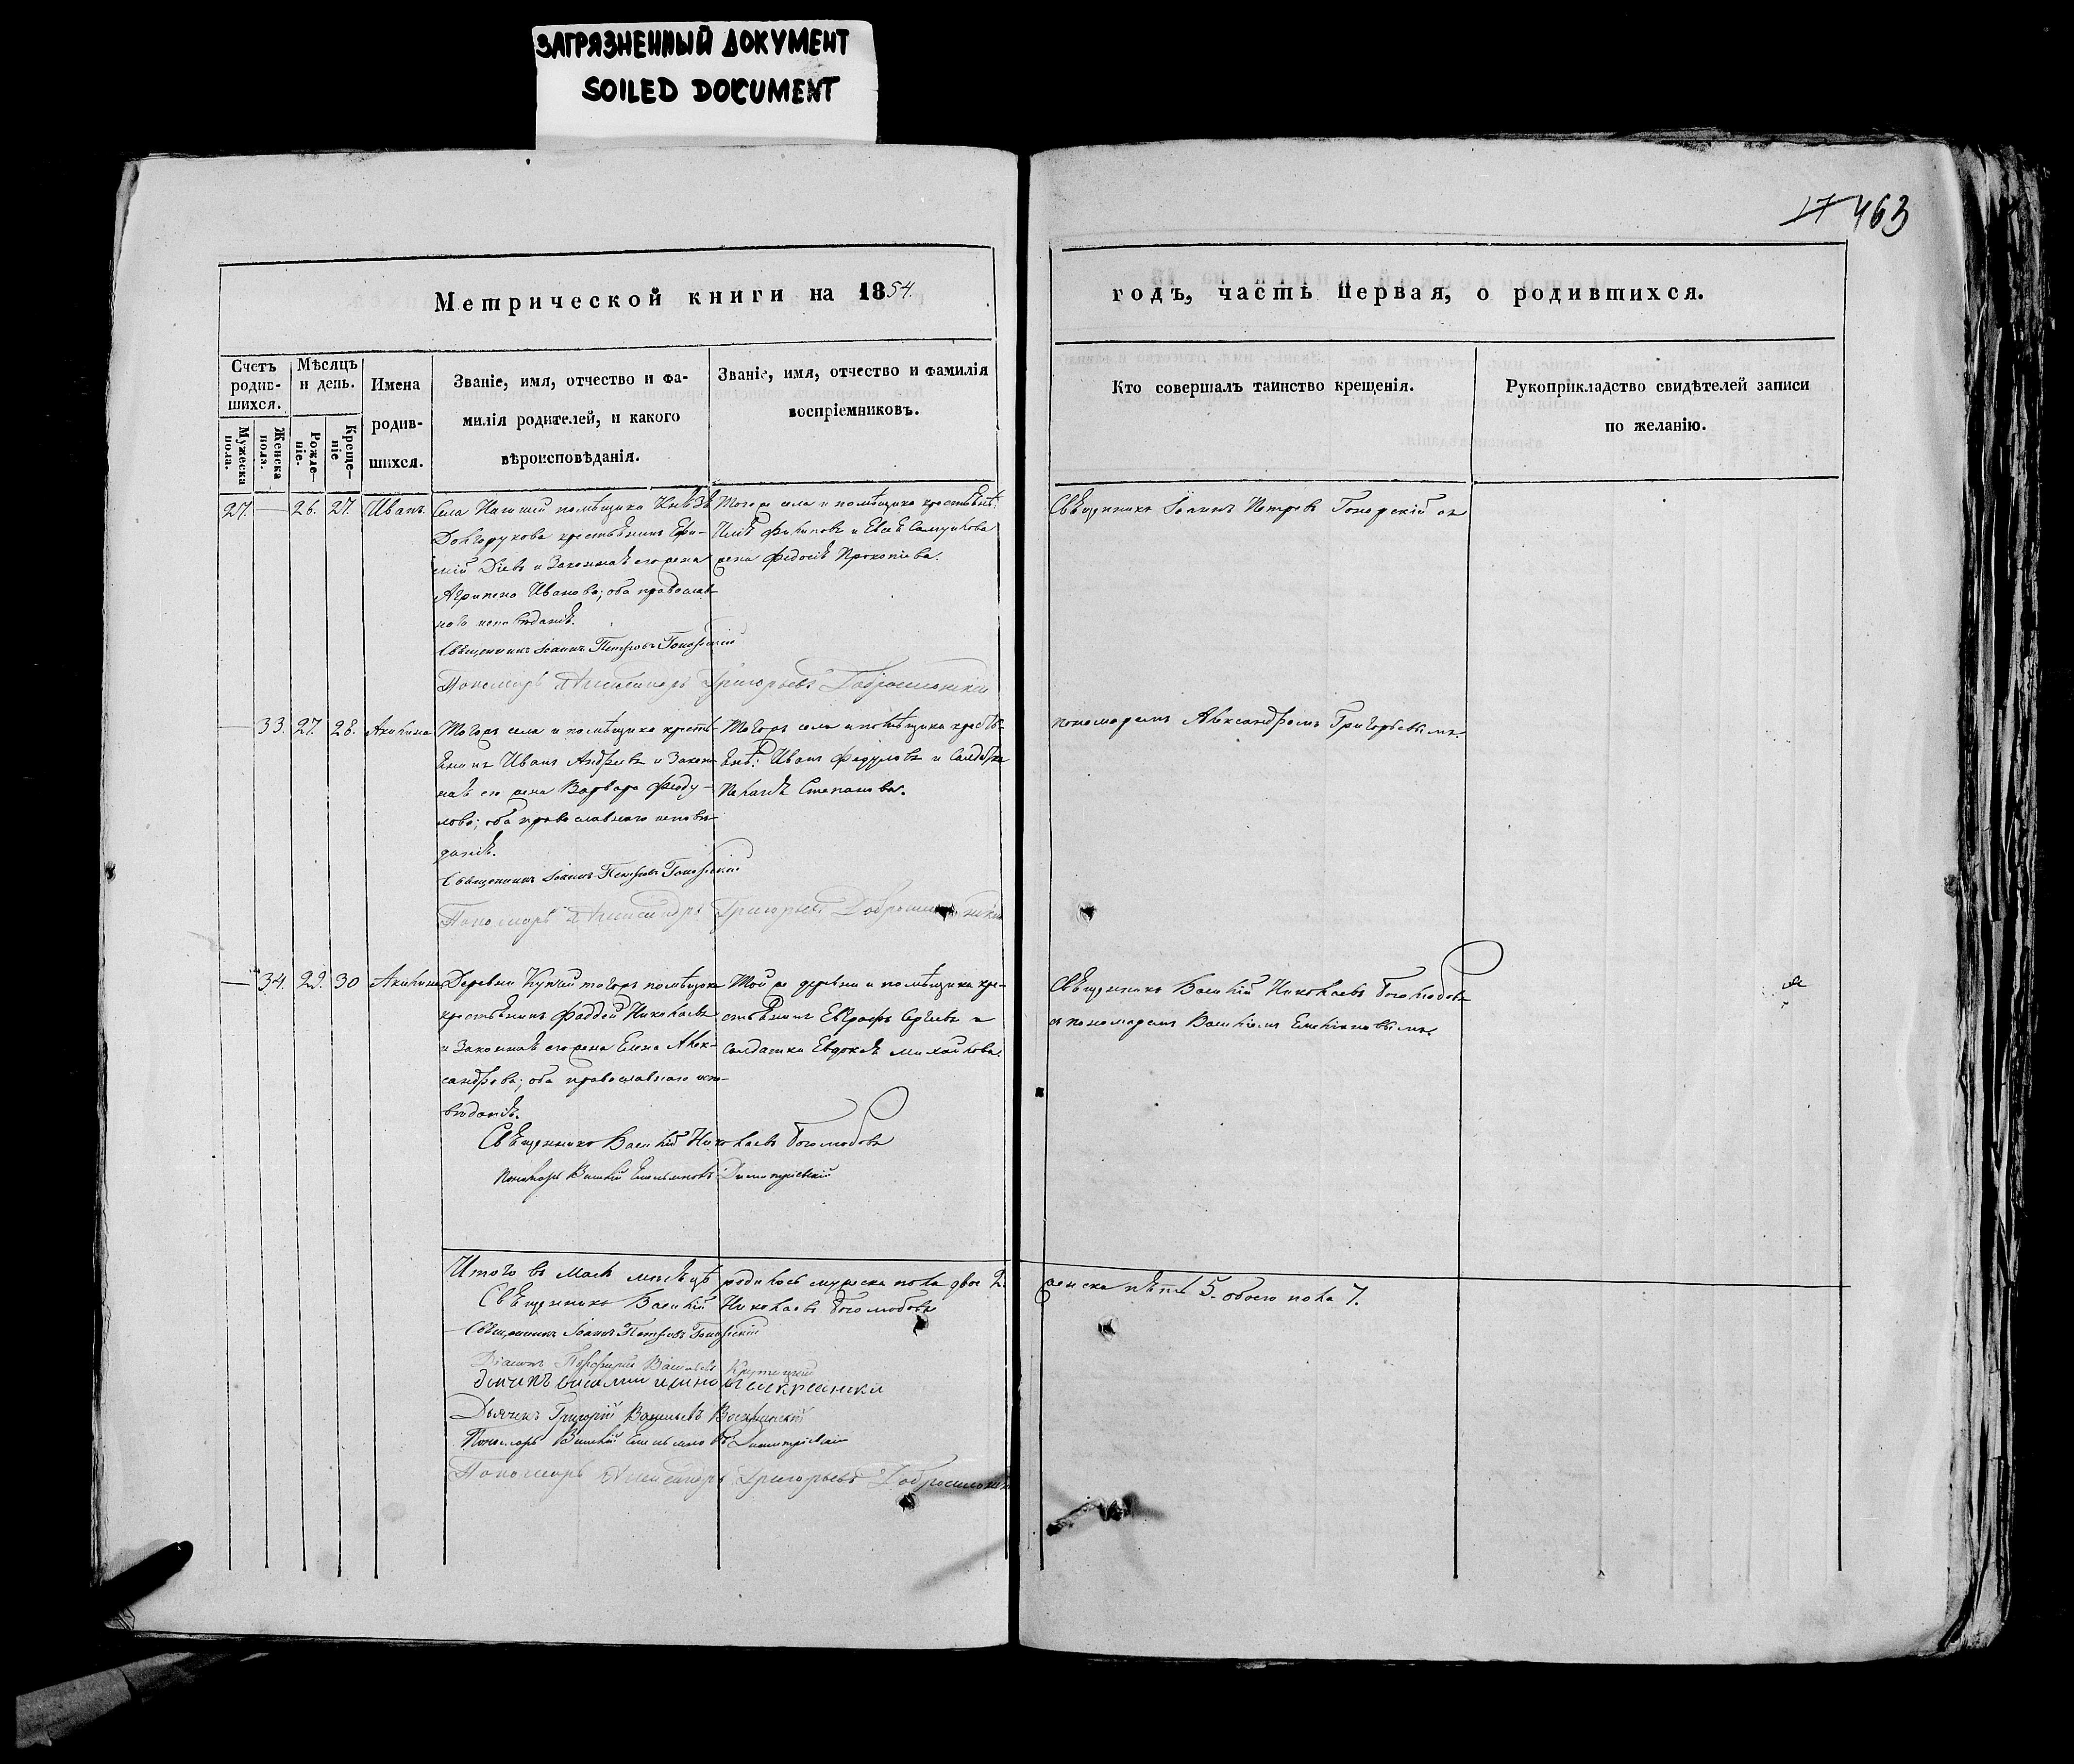 ЗАГРЯЗНЕННЫЙ ДОКУМЕНТ
SOILED DOCUMENT
17 463
Метрической книги на 1854.
годъ, часть первая, о родившихся.
Счетъ родив-шихся.
Мужеска пола.
Женска пола.
Мѣсяцъ и день.
Рожде-ніе.
Креще-ніе
Имена родив-шихся.
Званіе, имя, отчество и фа-
милія родителей, и какого
вѣроисповѣданія.
Званіе, имя, отчество и фамилія
воспріемниковъ.
Кто совершалъ таинство крещенія.
Рукоприкладство свидѣтелей записи
по желанію.
27. — 26. 27. Иванъ
Села помѣщика Князя
Долгорукова крестьянинъ Ефи-
мій и законная его жена
Агрипена Иванова; оба православ-
наго исповѣданія.
Священникъ Іоаннъ Петровъ
Пономарь Александръ Григорьевъ
Тогоже села и помѣщика крестьян:
Филиповъ и
жена Федосія Прокопіева.
Священникъ Іоаннъ Петровъ съ
— 33. 27. 28. Акилина
Тогожъ села и помѣщика кресть-
янинъ Иванъ Андреевъ и закон-
ная его жена Варвара Феоду-
лова; оба православнаго исповѣ-
данія.
Священникъ Іоаннъ Петровъ
Пономарь Александръ Григорьевъ
Тогожъ села и помѣщика крестья-
ян: Иванъ и солдатка
Пелагія Степанова.
пономаремъ Александромъ Григорьевымъ.
— 34. 29. 30 Акилина
Деревни тогожъ помѣщика
крестьянинъ Фаддей Николаевъ
и законная его жена Елена Алек-
сандрова; оба православнаго испо-
вѣданія.
Священникъ Василій Николаевъ Боголюбовъ
Пономарь Василій Емельяновъ Димитріевскій
Той же деревни и помѣщика кре-
стьянинъ Евграфъ Сергѣевъ и
солдатка Евдокія Михайлова.
Священникъ Василій Николаевъ Боголюбовъ
съ пономаремъ Василіемъ Емеліановымъ.
Итого въ Маѣ мѣсяцѣ родилось мужеска пола двое 2.
женска пять 5. обоего пола 7.
Священникъ Василій Николаевъ Боголюбовъ
Священникъ Іоаннъ Петровъ
Діаконъ Васильевъ
Дьячекъ Григорій Васильевъ
Пономарь Василій Емельяновъ Димитріевскій
Пономарь Александръ Григорьевъ